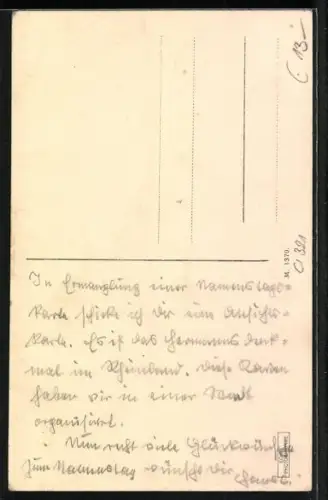 ( 13,-
M. 1370.
01321
In Ermanglung einer Namenstags-
karte schicke ich Dir eine Ansichts-
karte. Es ist das Hermannsdenk-
mal im Rheinland. Diese Karten
haben wir in einer Stadt
organisiert.
Nun recht viele Glückwünsche
zum Namenstag wünscht Dir